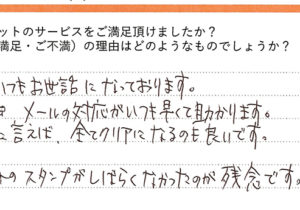 ットのサービスをご満足頂けましたか？
満足・ご不満）の理由はどのようなものでしょうか？
いつもお世話になっております。
メールの対応がいつも早くて助かります。
に言えば、全てクリアになるのも良いです。
のスタンプがしばらくなかったのが残念です。